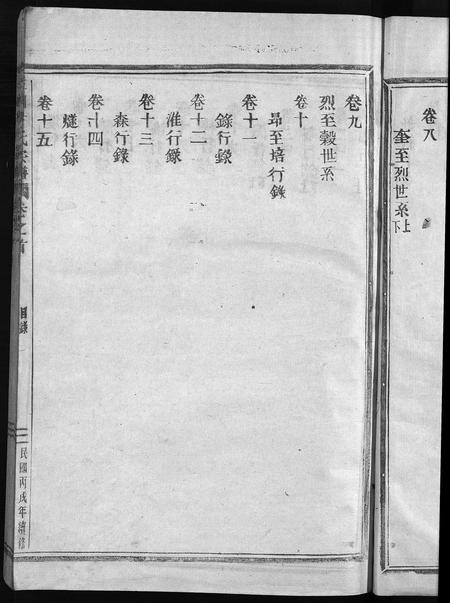 卷八
奎至烈世系上下
卷九
烈至穀世系
卷十
昂至培行錄
卷十一
錄行錄
卷十二
淮行錄
卷十三
森行錄
卷十四
燧行錄
卷十五
氏宗譜
卷之首
目錄
民國丙戌年續修